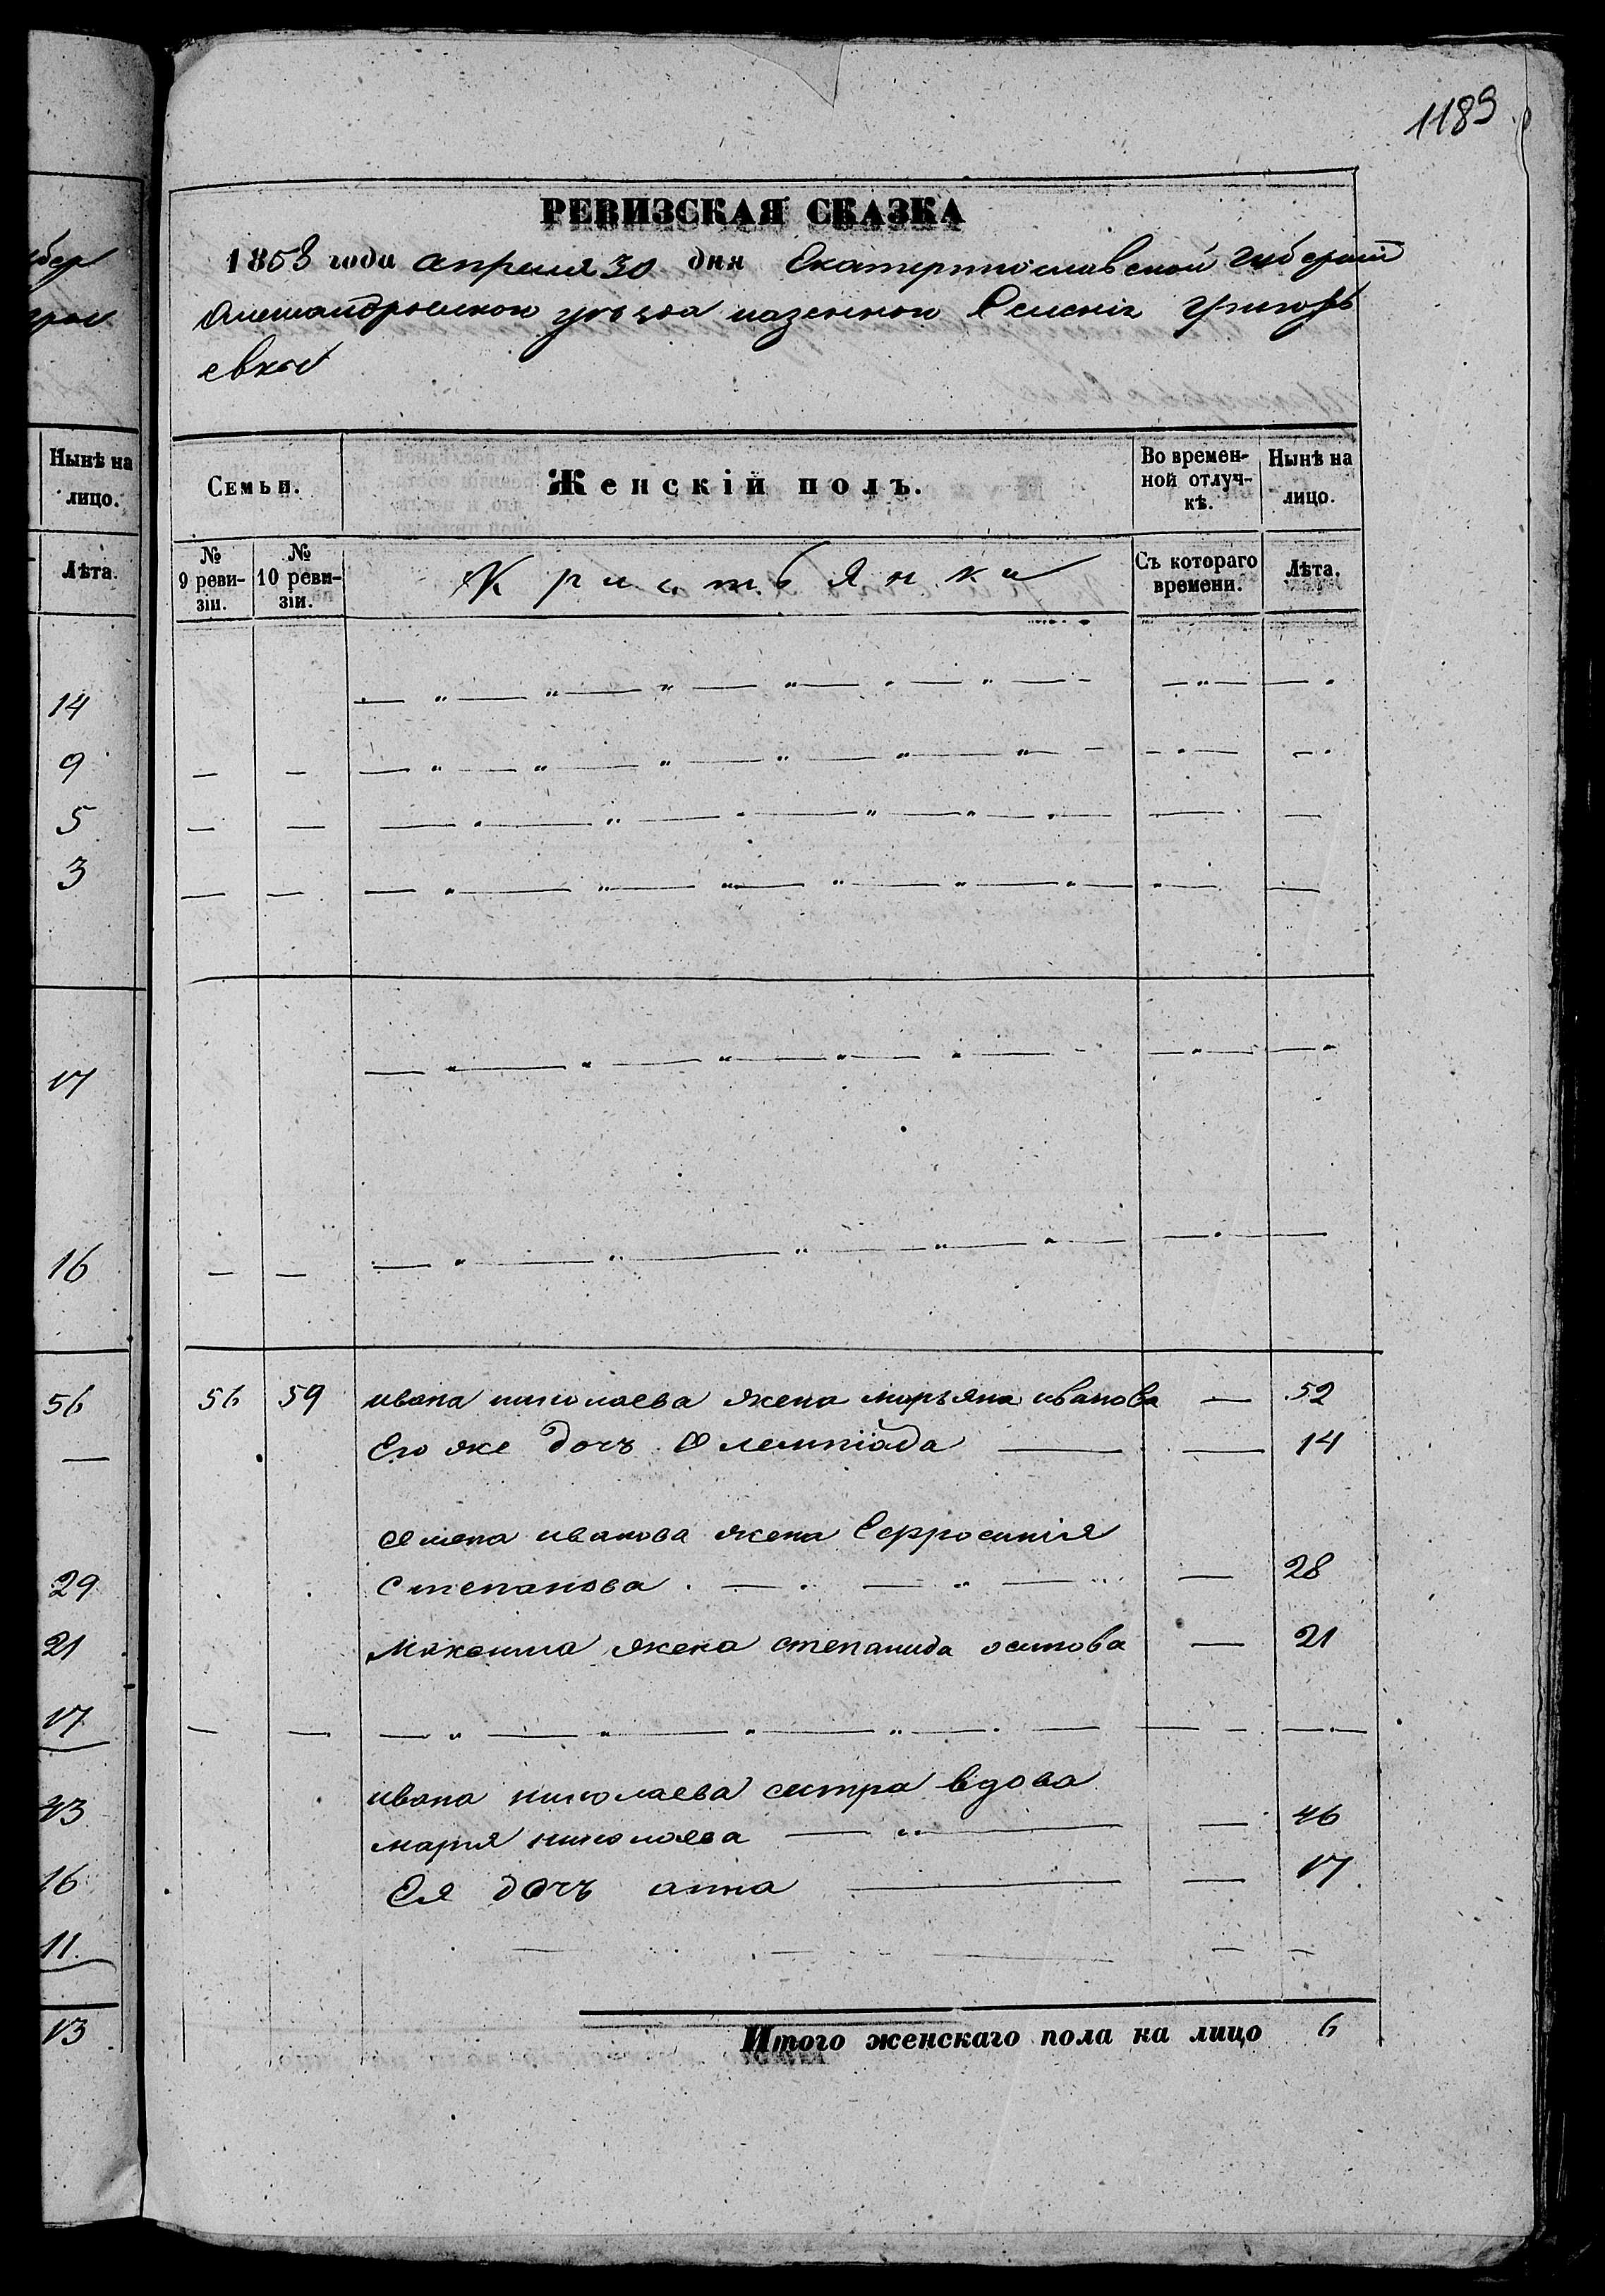 1189
РЕВИЗСКАЯ СКАЗКА
1858 года апреля 30 дня Екатеринославской губернiи
Александровскои уезда казеннои Селенiя Григорь
евки
Нынѣ на лицо.
Лѣта.
14
9
5
3
17
16
56
—
29
21
17
23
16
11
13
Семьи.
Женскій полъ.
Во времен-
ной отлуч-
кѣ.
Нынѣ на
лицо.
№
9 реви-
зіи.
№
10 реви-
зіи.
Кристьянка
Съ котораго
времени.
Лѣта.
56 59 ивана николаева жена марьяна иванова — 52
Его же дочъ Олемпiада — 14
Семена иванова жена Ефросинiя
Степанова — 28
Максима жена степанида осипова — 21
ивана николаева систра вдова
мария николаева — 46
Ея дочъ анна — 17
Итого женскаго пола на лицо 6